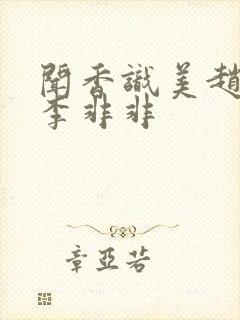 聞香識美趙
李非非
章亞若